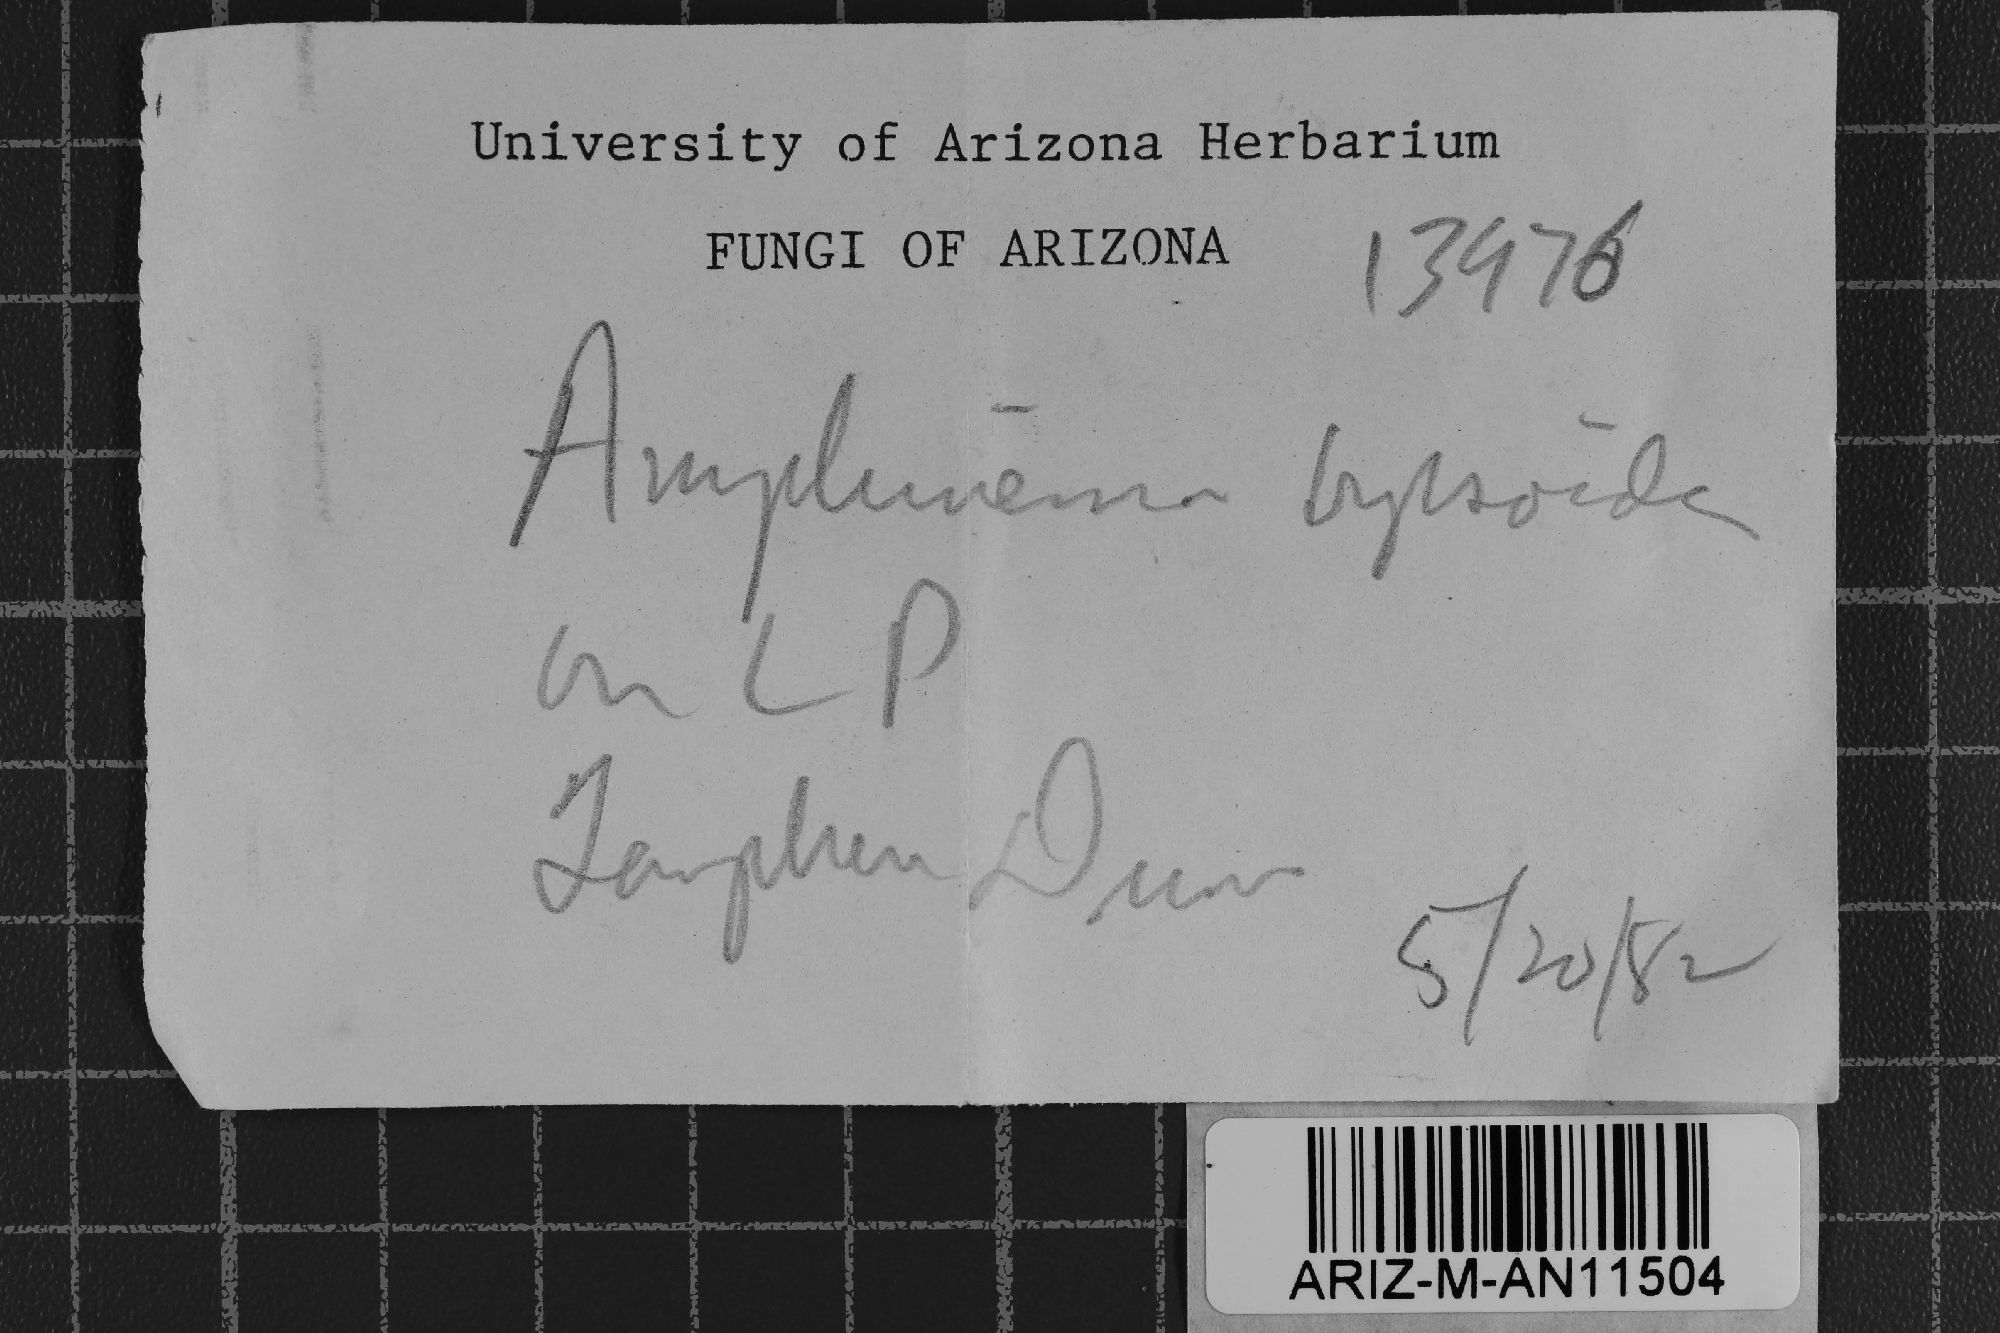 University of Arizona Herbarium
FUNGI OF ARIZONA
13976
Amphinema byssoides
on LP
5/20/82
ARIZ-M-AN11504